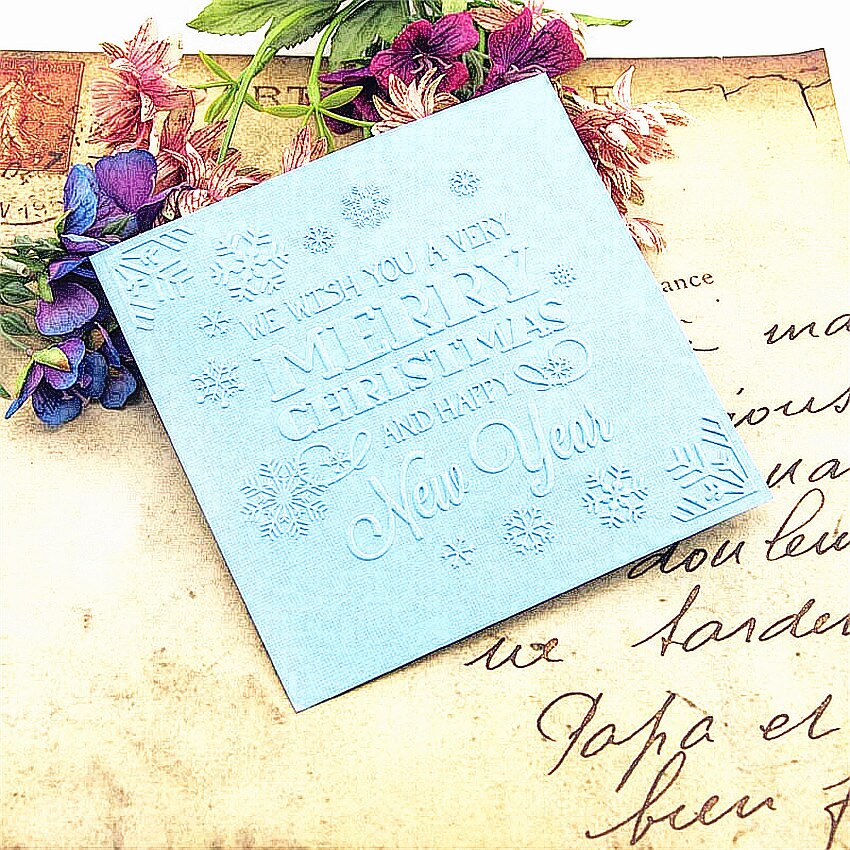 WE WISH YOU A VERY
MERRY
CHRISTMAS
AND HAPPY
New Year
ance
ma
ious
ua
dou leu
we tarder
Papa et
bien